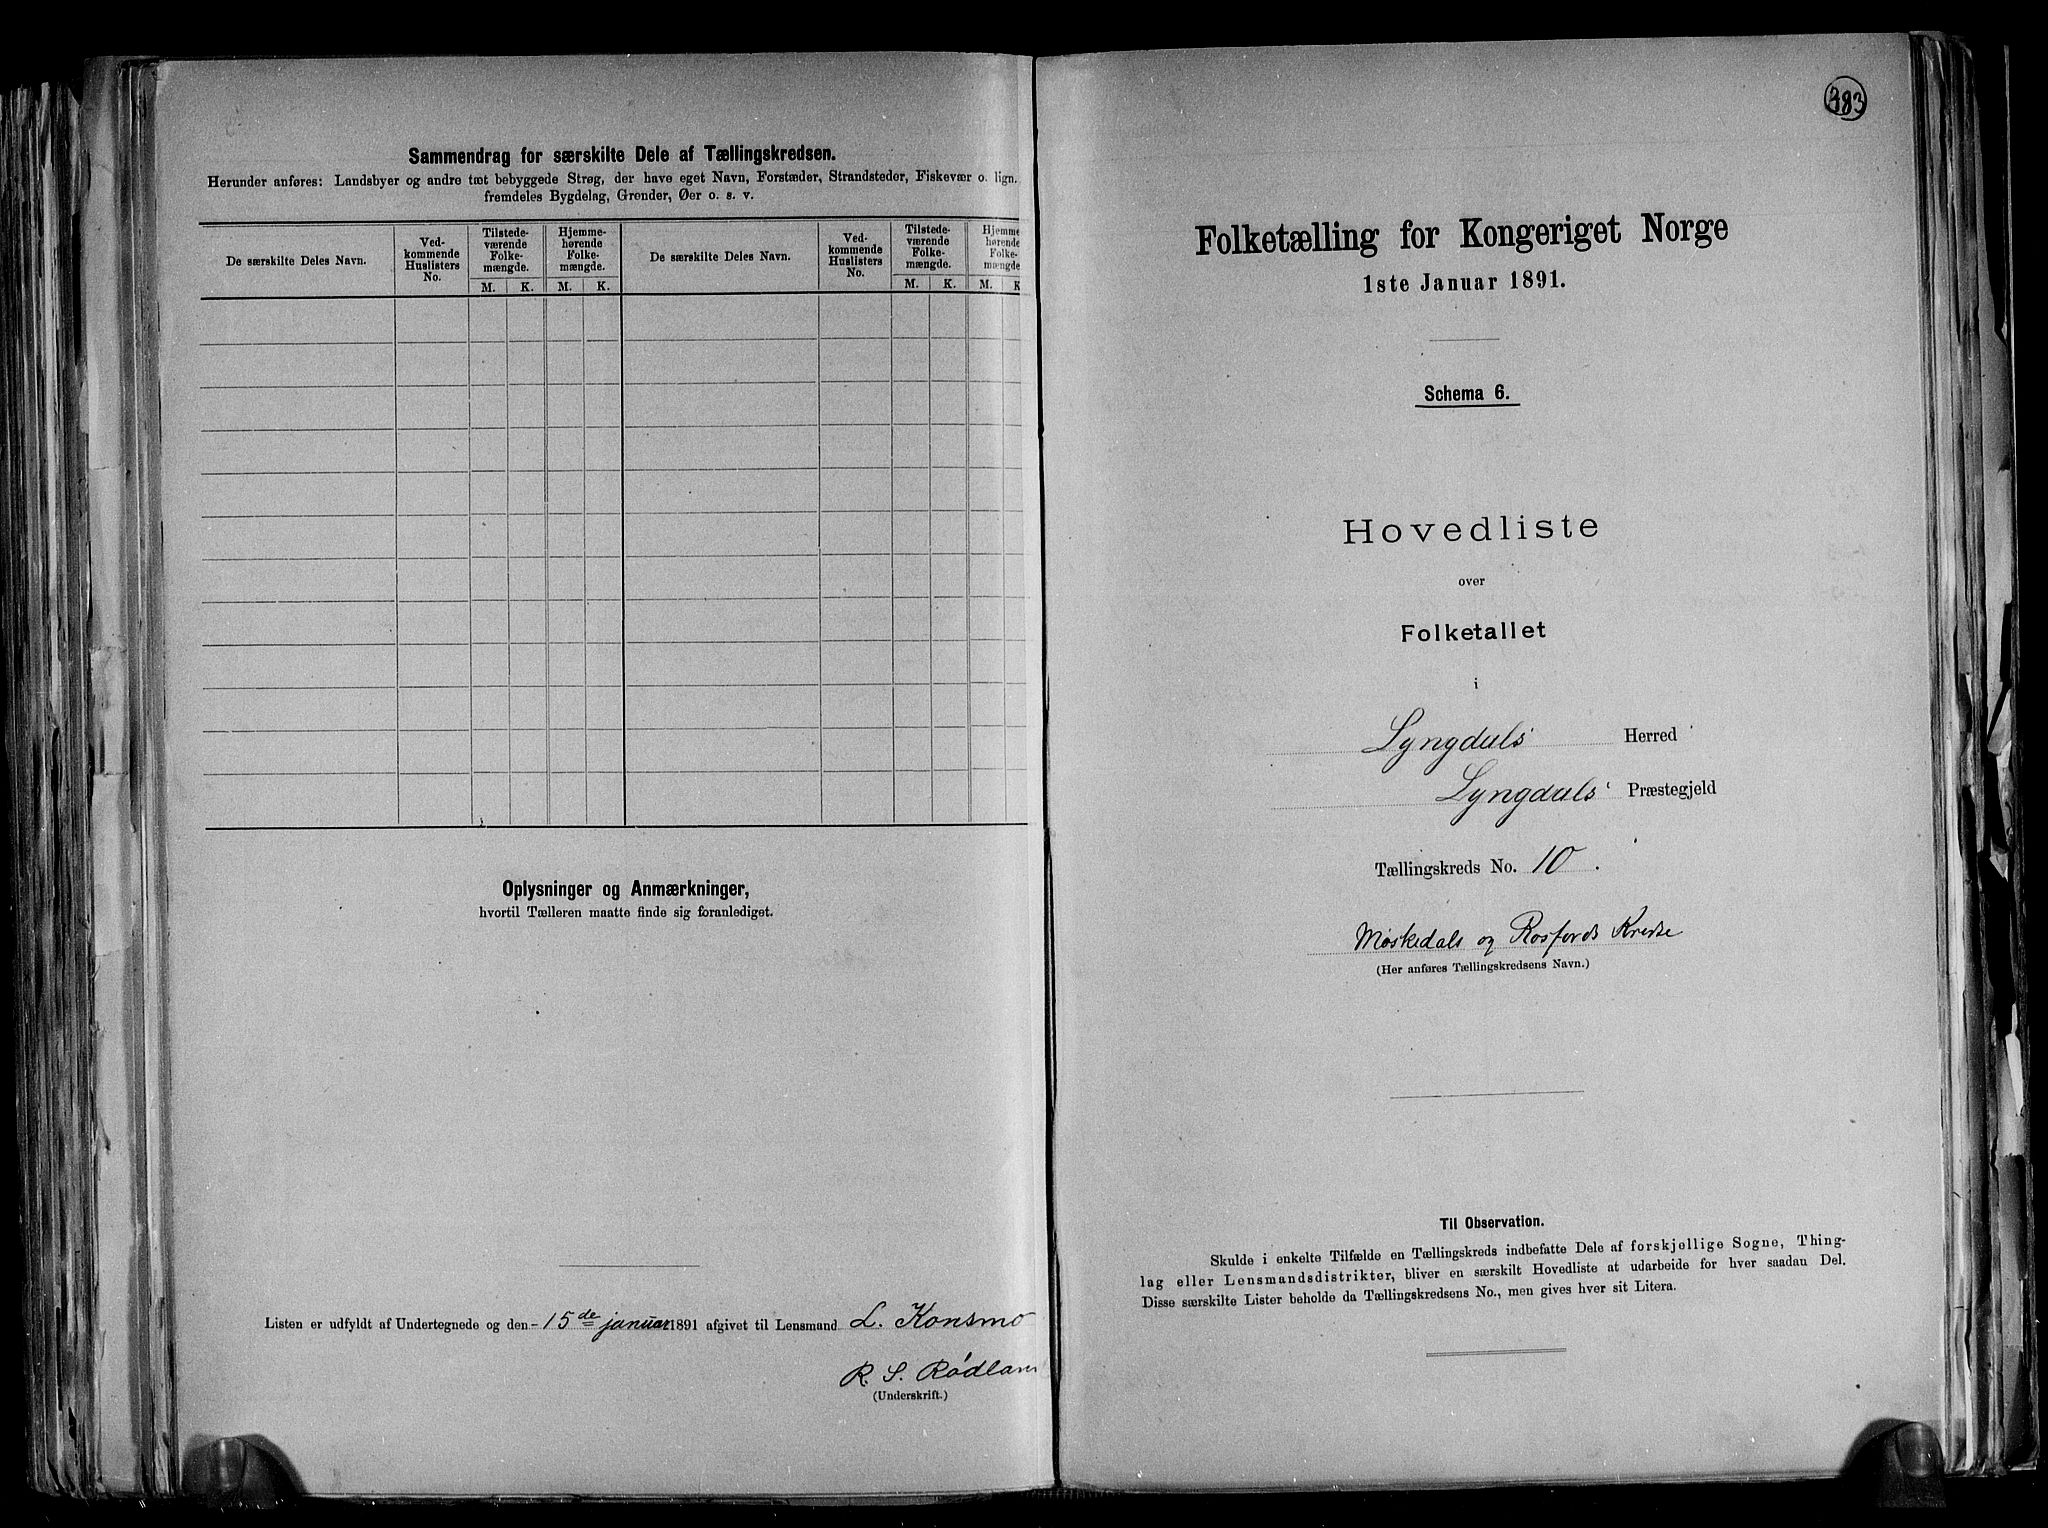 Sammendrag for særskilte Dele af Tællingskredsen.
Herunder anføres: Landsbyer og andre tæt bebyggede Strøg, der have eget Navn, Forstæder, Strandsteder, Fiskevær o. lign.
fremdeles Bygdelag, Grender, Øer o. s. v.
De særskilte Deles Navn.
Ved-
kommende
Huslisters
No.
Tilstede-
værende
Folke-
mængde.
Hjemme-
hørende
Folke-
mængde.
De særskilte Deles Navn.
Ved-
kommende
Huslisters
No.
Tilstede-
værende
Folke-
mængde.
Hjemme
hørende
Folke-
mængde
M. K. M. K. M. K. M. K
Oplysninger og Anmærkninger,
hvortil Tælleren maatte finde sig foranlediget.
Listen er udfyldt af Undertegnede og den 15de januar 1891 afgivet til Lensmand L. Konsmo
R. S. Rødland
(Underskrift.)
383
Folketælling for Kongeriget Norge
1ste Januar 1891.
Schema 6.
Hovedliste
over
Folketallet
i
Lyngdals Herred
Lyngdals Præstegjeld
Tællingskreds No. 10.
Møskedals og Rosfjords Kredse
(Her anføres Tællingskredsens Navn.)
Til Observation.
Skulde i enkelte Tilfælde en Tællingskreds indbefatte Dele af forskjellige Sogne, Thing-
lag eller Lensmandsdistrikter, bliver en særskilt Hovedliste at udarbeide for hver saadan Del.
Disse særskilte Lister beholde da Tællingskredsens No., men gives hver sit Litera.